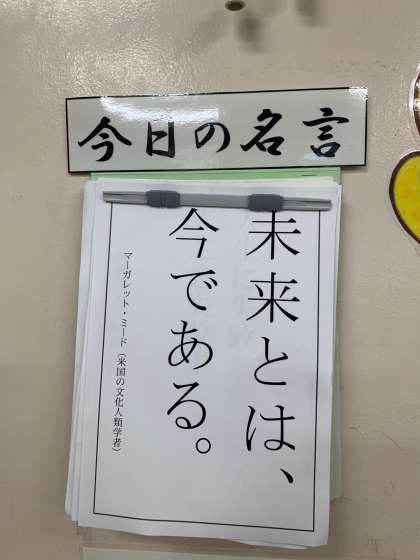 今日の名言
未来とは、
今である。
マーガレット・ミード（米国の文化人類学者）